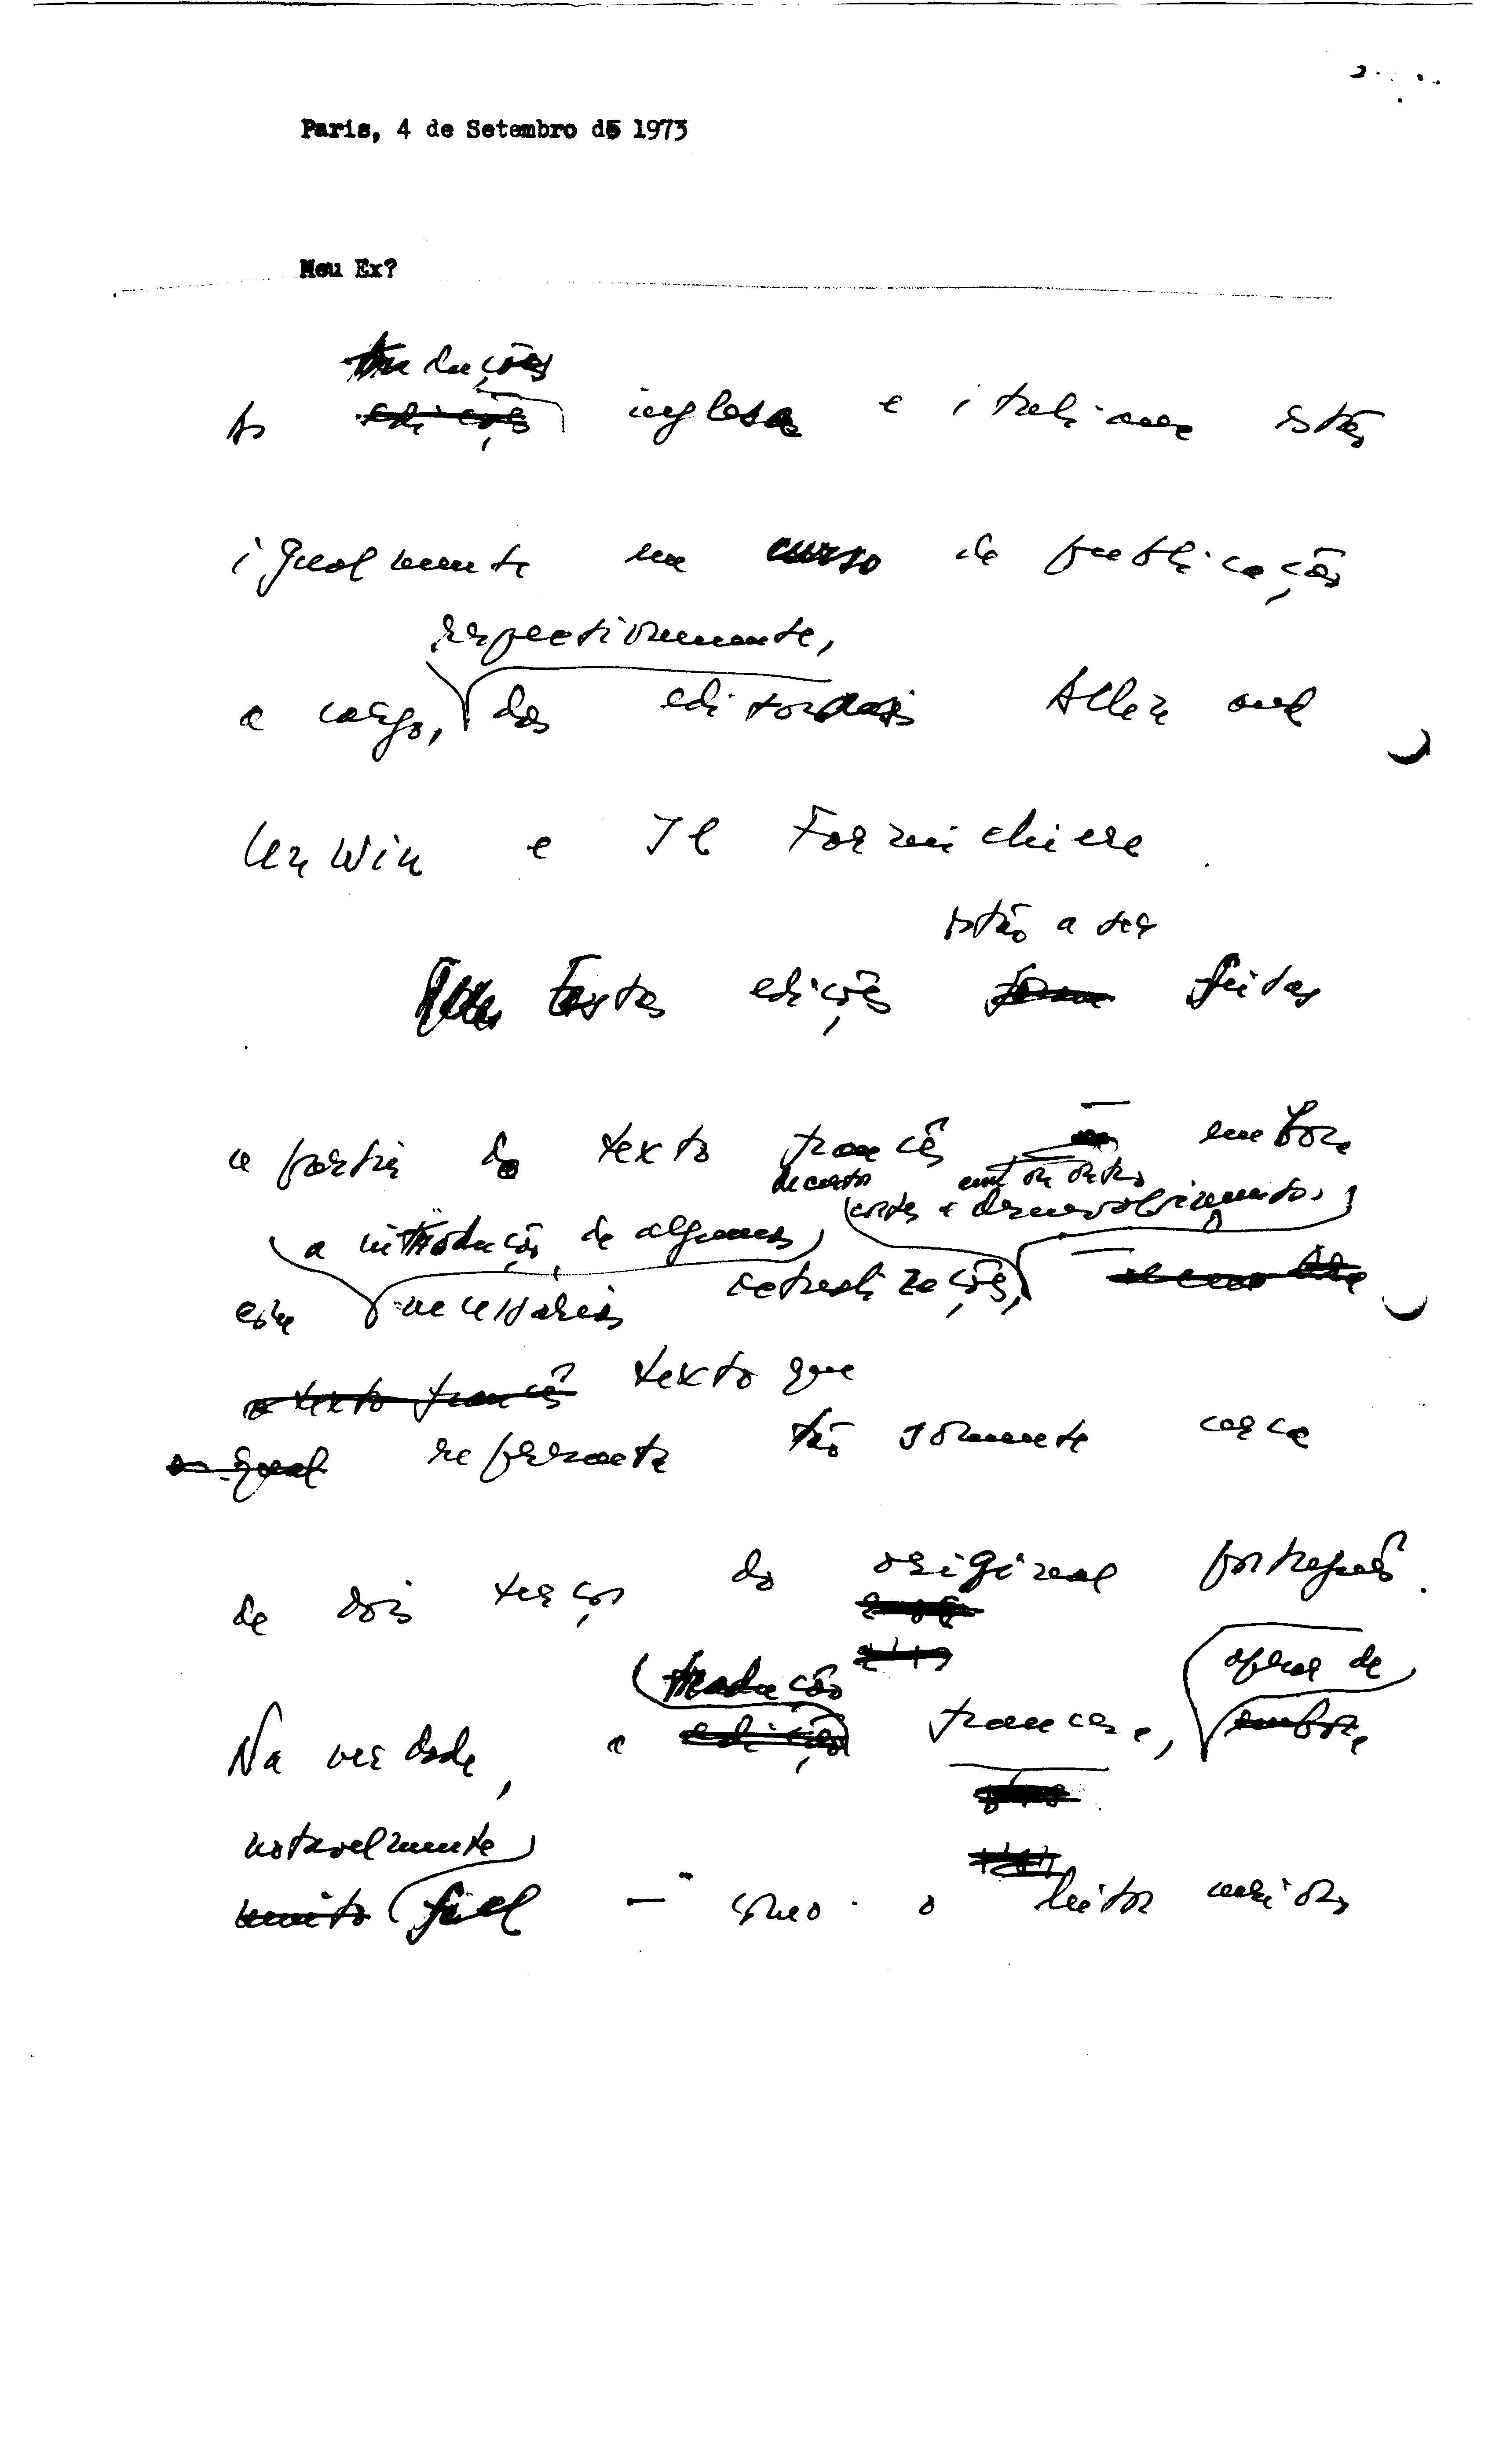 Paris, 4 de Setembro de 1973
Meu Ex?
traduções
As edições inglesa e italiana estão
igualmente em curso de publicação
respectivamente,
a cargo, das editoriais Allen and
Unwin e Il Formichiere.
estão a ser
Estas edições foram feitas
a partir do texto francês — embora
decerto
cortes e desenvolvimentos,
a introdução de algumas
com necessárias actualizações,
o texto francês texto que
o qual representa tão somente cerca
de dois terços do original português.
tradução apesar de
Na verdade, a edição francesa, embora
notavelmente
muito fiel — o leitor